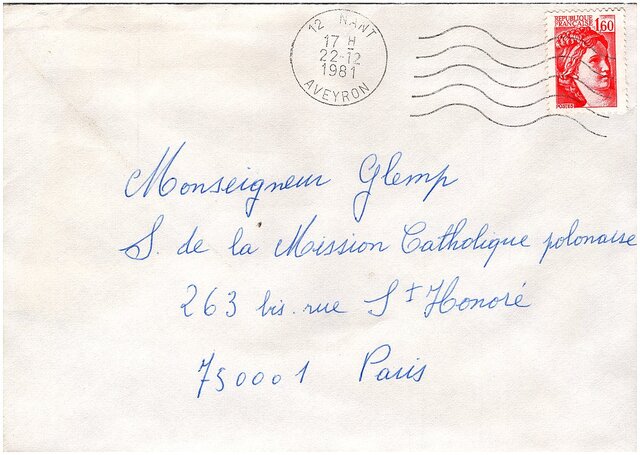 12 NANT
17 H
22-12
1981
AVEYRON
REPUBLIQUE
FRANÇAISE 1,60
POSTES
Monseigneur Glemp
S. de la Mission Catholique polonaise
263 bis. rue St Honoré
750001 Paris